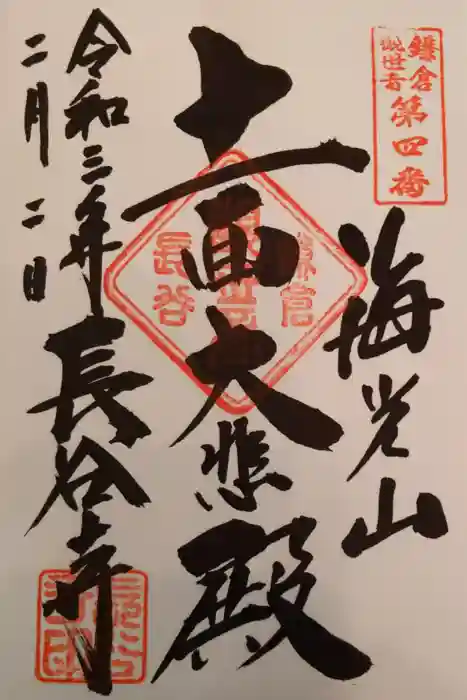 鎌倉
観世音
第四番
海光山
十一面大悲殿
鎌倉
長谷
長谷寺
令和三年
二月二日